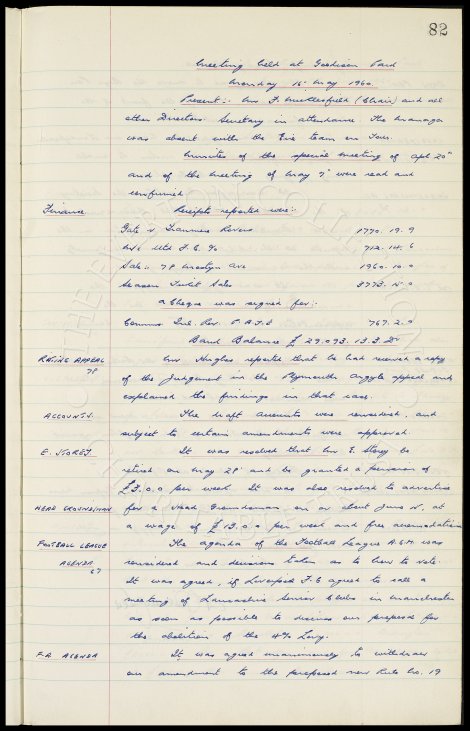 82
Meeting held at Goodison Park
Monday 16th May 1960.
Present:- Mr F. Micklesfield (Chair) and all
other Directors. Secretary in attendance The Manager
was absent with the team on Tour.
Minutes of the special meeting of Apl 20th
and of the meeting of May 9th were read and
confirmed
Finance Receipts reported were:-
Gate v Tranmere Rovers 1770. 19. 9
M/c Utd F.C. % 712. 14. 6
Sale:- 78 Mostyn Ave 1960. 10. 0
Season Ticket Sales 3773. 15. 0
a Cheque was signed for:-
Commrs Inl. Rev. 767. 2. 0
Bank Balance £ 29,093. 13. 3 Dr
RATING APPEAL Mr Hughes reported that he had received a copy
78
of the Judgement in the Plymouth Argyle appeal and
explained the findings in that case.
ACCOUNTS. The draft accounts were considered, and
subject to certain amendments were approved.
E. STOREY. It was resolved that Mr E. Storey be
retired on May 28th and be granted a pension of
£3. 0. 0 per week. It was also resolved to advertise
HEAD GROUNDSMAN for a Head Groundsman on or about June 15, at
a wage of £13. 0. 0 per week and free accomodation
FOOTBALL LEAGUE The agenda of the Football League A.G.M. was
AGENDA considered and decisions taken as to how to vote.
67
It was agreed, if Liverpool F.C agreed to call a
meeting of Lancashire Senior Clubs in Manchester
as soon as possible to discuss our proposal for
the abolition of the 4% Levy.
F.A AGENDA It was agreed unanimously to withdraw
our amendment to the proposed new Rule No. 19